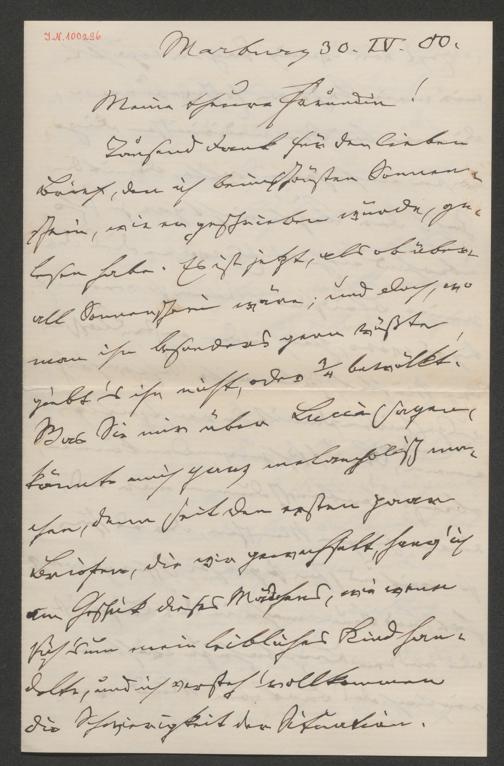 J.N. 100296
Marburg 30. IV. 80.
Meine theure Freundin!
Tausend Dank für den lieben
Brief, den ich beim schönsten Sonnen-
schein, wie er geschrieben wurde, ge-
lesen habe. Es ist jetzt, als ob über-
all Sonnenschein wäre; und doch, wo
man ihn besonders gern wüßte,
giebt's ihn nicht, oder 3/4 bewölkt.
Was Sie mir über Luccia sagen,
könnte mich ganz melancholisch ma-
chen, denn seit den ersten paar
Briefen, die wir gewechselt, häng' ich
am Geschick dieses Mädchens, wie wenn
sich's um mein leibliches Kind han-
delte, und ich versteh' vollkommen
die Schwierigkeit der Situation.